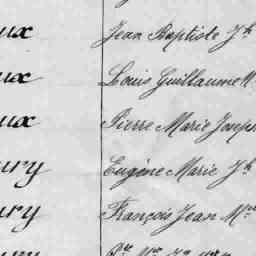 ux Jean Baptiste Jh
ux Louis Guillaume
ux Pierre Marie Joseph
ury Eugène Marie Jh
ury François Jean Mie
ury